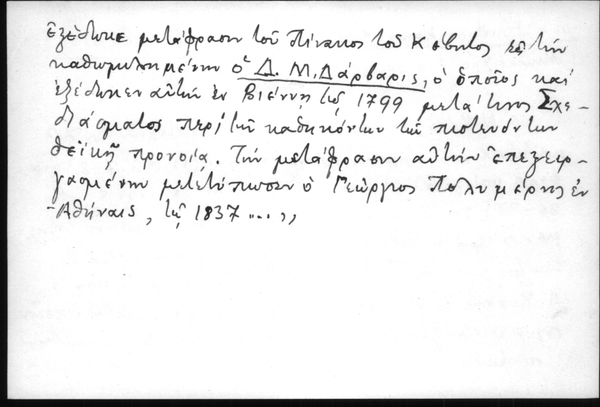 ἐξέδωκε μετάφρασιν τοῦ Πίνακος τοῦ Κέβητος εἰς τὴν
καθωμιλημένην ὁ Δ. Ν. Δάρβαρις, ὁ ὁποῖος καὶ
ἐξέδωκεν αὐτὴν ἐν Βιέννῃ τῷ 1799 μετά τινος Σχε-
διάσματος περὶ τῶν καθηκόντων τῶν πιστευόντων
θεϊκῇ προνοίᾳ. Τὴν μετάφρασιν αὐτὴν ἐπεξειρ-
γασμένην μετετύπωσεν ὁ Γεώργιος Πολυμέρης ἐν
Ἀθήναις, τῷ 1837 ....,,